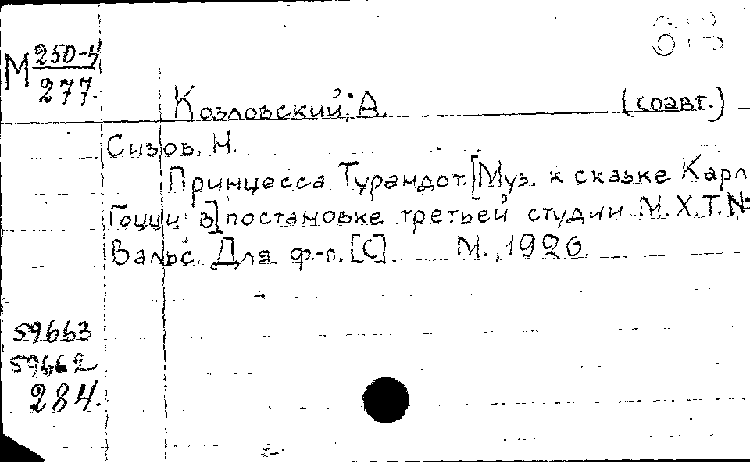 М 250-4
277.
Козловский, А. (соавт.)
Сизов, Н.
Принцесса Турандот. [Муз. к сказке Карл
Гоцци в] постановке третьей студии М.Х.Т. №
Вальс. Для ф-п. [C]. М., 1926
59663
59662
284.